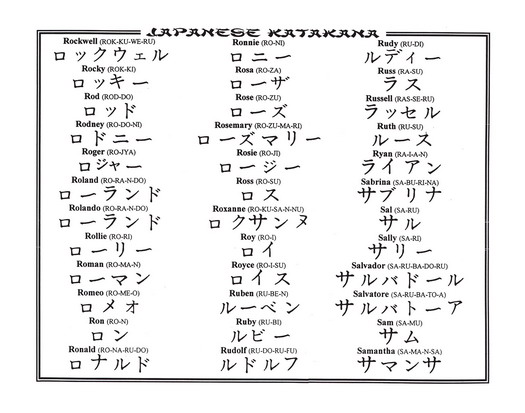 JAPANESE KATAKANA
Rockwell (ROK-KU-WE-RU)
ロックウェル
Rocky (ROK-KI)
ロッキー
Rod (ROD-DO)
ロッド
Rodney (RO-DO-NI)
ロドニー
Roger (RO-JYA)
ロジャー
Roland (RO-RA-N-DO)
ローランド
Rolando (RO-RA-N-DO)
ローランド
Rollie (RO-RI)
ローリー
Roman (RO-MA-N)
ローマン
Romeo (RO-ME-O)
ロメオ
Ron (RO-N)
ロン
Ronald (RO-NA-RU-DO)
ロナルド
Ronnie (RO-NI)
ロニー
Rosa (RO-ZA)
ローザ
Rose (RO-ZU)
ローズ
Rosemary (RO-ZU-MA-RI)
ローズマリー
Rosie (RO-JI)
ロージー
Ross (RO-SU)
ロス
Roxanne (RO-KU-SA-N-NU)
ロクサンヌ
Roy (RO-I)
ロイ
Royce (RO-I-SU)
ロイス
Ruben (RU-BE-N)
ルーベン
Ruby (RU-BI)
ルビー
Rudolf (RU-DO-RU-FU)
ルドルフ
Rudy (RU-DI)
ルディー
Russ (RA-SU)
ラス
Russell (RAS-SE-RU)
ラッセル
Ruth (RU-SU)
ルース
Ryan (RA-I-A-N)
ライアン
Sabrina (SA-BU-RI-NA)
サブリナ
Sal (SA-RU)
サル
Sally (SA-RI)
サリー
Salvador (SA-RU-BA-DO-RU)
サルバドール
Salvatore (SA-RU-BA-TO-A)
サルバトーア
Sam (SA-MU)
サム
Samantha (SA-MA-N-SA)
サマンサ